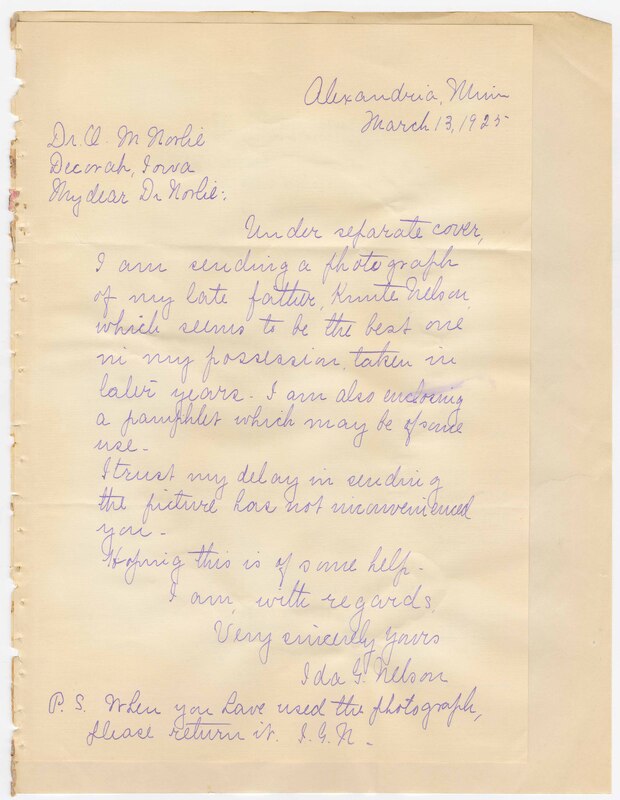 Alexandria, Minn
March 13, 1925
Dr. O. M Norlie
Decorah, Iowa
My dear Dr Norlie:
Under separate cover,
I am sending a photograph
of my late father, Knute Nelson,
which seems to be the best one
in my possession, taken in
later years. I am also enclosing
a pamphlet which may be of some
use.
I trust my delay in sending
the picture has not inconvenienced
you.
Hoping this is of some help.
I am, with regards,
Very sincerely yours
Ida G. Nelson
P. S. When you have used the photograph,
please return it. I.G.N.